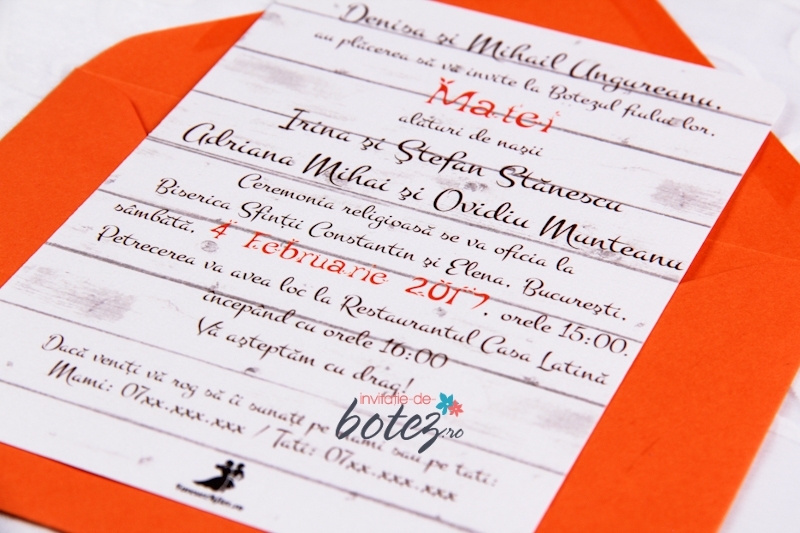 Denisa şi Mihail Ungureanu,
au plăcerea să vă invite la Botezul fiului lor.
Matei
alături de naşii
Irina şi Ştefan Stănescu
Adriana Mihai şi Ovidiu Munteanu
Ceremonia religioasă se va oficia la
Biserica Sfinţii Constantin şi Elena. Bucureşti.
sâmbătă, 4 Februarie 2017, orele 15:00.
Petrecerea va avea loc la Restaurantul Casa Latină
începând cu orele 16:00
Vă aşteptăm cu drag!
Dacă veniţi vă rog să îi sunaţi pe Mami sau pe tati:
Mami: 07xx.xxx.xxx / Tati: 07xx.xxx.xxx
invitatie-de-
botez.ro